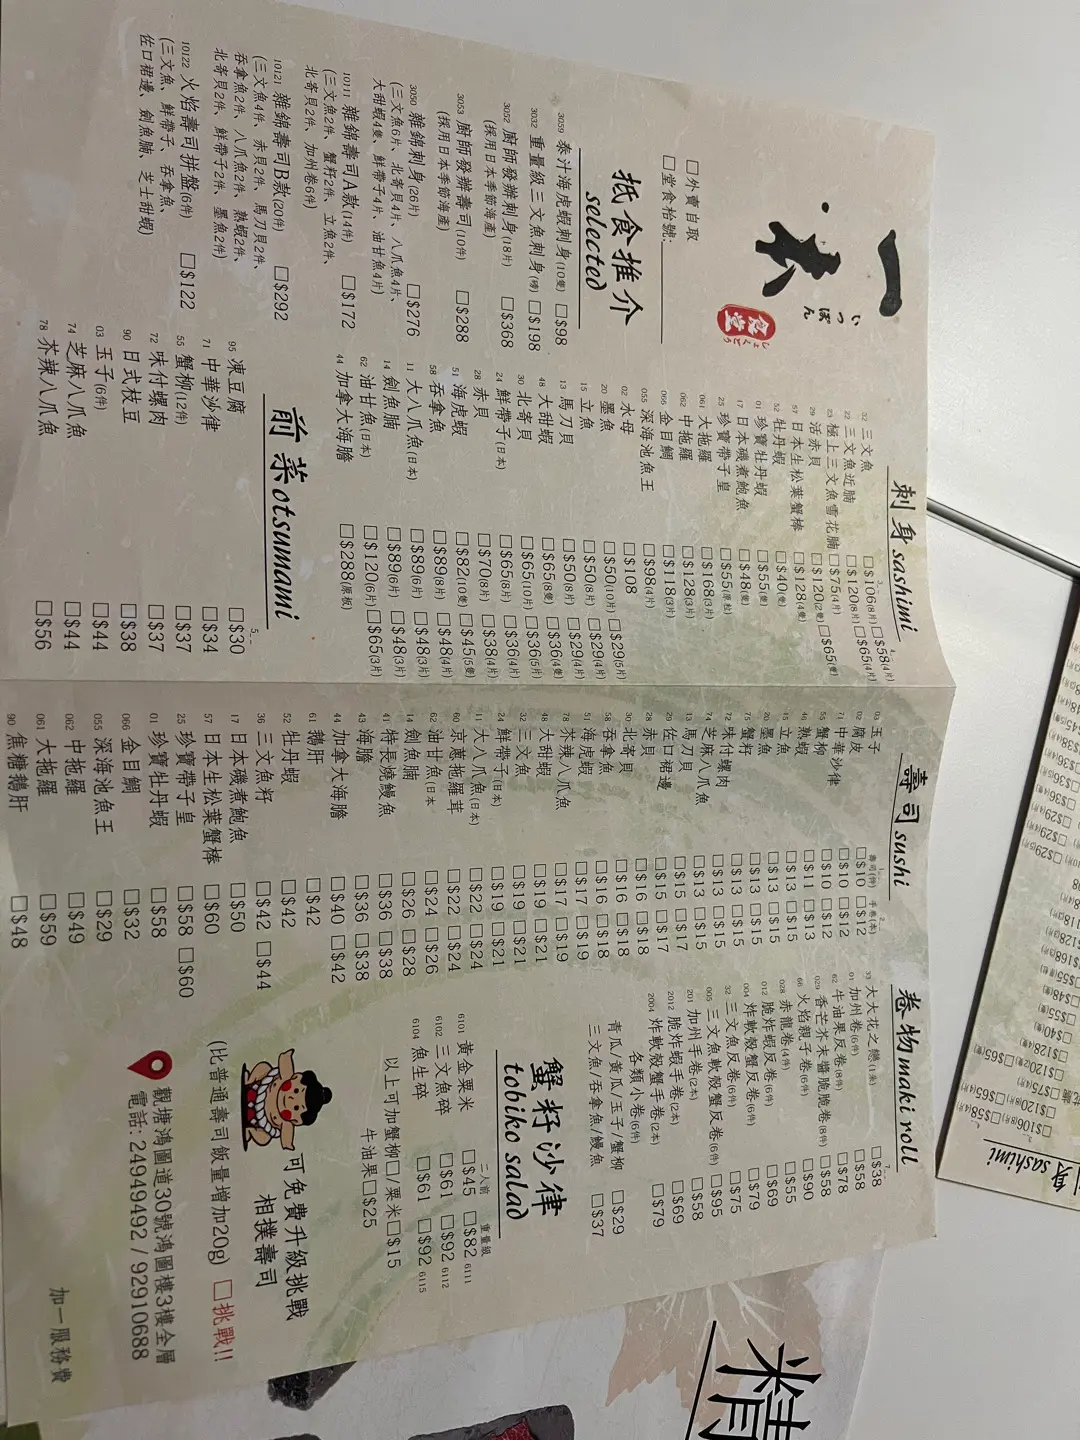 一本
いっぽん
食堂
しょくどう
□外賣自取
□堂食枱號:
抵食推介
selected
3059 泰汁海虎蝦刺身(10隻) □$98
3032 重量級三文魚刺身(磚) □$198
3052 廚師發辦刺身(18片) □$368
(採用日本季節海產)
3053 廚師發辦壽司(10件) □$288
(採用日本季節海產)
3050 雜錦刺身(26片) □$276
(三文魚6片、北寄貝4片、八爪魚4片、
大甜蝦4隻、鮮帶子4片、油甘魚4片)
10111 雜錦壽司A款(14件) □$172
(三文魚2件、蟹籽2件、立魚2件、
北寄貝2件、加州卷6件)
10121 雜錦壽司B款(20件) □$292
(三文魚4件、赤貝2件、馬刀貝2件、
吞拿魚2件、八爪魚2件、熟蝦2件、
北寄貝2件、鮮帶子2件、墨魚2件)
10122 火焰壽司拼盤(6件) □$122
(三文魚、鮮帶子、吞拿魚、
佐口裙邊、劍魚腩、芝士甜蝦)
刺身sashimi
32 三文魚 □$106(8片) □$58(4片)
22 三文魚近腩 □$120(8片) □$65(4片)
23 極上三文魚雪花腩 □$75(4片)
29 活赤貝 □$120(2隻) □$65(隻)
57 日本生松葉蟹棒 □$128(4隻)
52 牡丹蝦 □$40(隻)
01 珍寶牡丹蝦 □$55(隻)
17 日本磯煮鮑魚 □$48(隻)
25 珍寶帶子皇 □$55(原粒)
061 大拖羅 □$168(3片)
062 中拖羅 □$128(3片)
066 金目鯛 □$118(3片)
055 深海池魚王 □$98(4片)
02 水母 □$108
20 墨魚 □$90(10片) □$29(5片)
15 立魚 □$50(8片) □$29(4片)
13 馬刀貝 □$50(8片) □$29(4片)
48 大甜蝦 □$65(8隻) □$36(4隻)
30 北寄貝 □$65(10片) □$36(5片)
24 鮮帶子(日本) □$65(8片) □$36(4片)
28 赤貝 □$70(8片) □$38(4片)
51 海虎蝦 □$82(10隻) □$45(5隻)
58 吞拿魚 □$89(8片) □$48(4片)
11 大八爪魚(日本) □$89(6片) □$48(3片)
14 劍魚腩 □$89(6片) □$48(3片)
62 油甘魚(日本) □$120(6片) □$65(3片)
44 加拿大海膽 □$288(原板)
前菜otsumami
95 凍豆腐 □$30
71 中華沙律 □$34
55 蟹柳(12件) □$37
72 味付螺肉 □$37
90 日式枝豆 □$38
03 玉子(6件) □$44
74 芝麻八爪魚 □$44
78 芥辣八爪魚 □$56
壽司sushi
壽司(件) 手卷(本)
03 玉子 □$10 □$12
02 腐皮 □$10 □$12
71 中華沙律 □$10 □$12
55 蟹柳 □$11 □$13
46 熟蝦 □$13 □$15
15 立魚 □$13 □$15
20 墨魚 □$13 □$15
75 蟹籽 □$13 □$15
72 味付螺肉 □$13 □$15
74 芝麻八爪魚 □$13 □$15
13 馬刀貝 □$15 □$17
29 佐口裙邊 □$15 □$17
28 赤貝 □$16 □$18
30 北寄貝 □$16 □$18
58 吞拿魚 □$16 □$18
51 海虎蝦 □$17 □$19
78 芥辣八爪魚 □$17 □$19
48 大甜蝦 □$19 □$21
32 三文魚 □$19 □$21
24 鮮帶子(日本) □$19 □$21
11 大八爪魚(日本) □$22 □$24
60 京惠拖羅茸 □$22 □$24
62 油甘魚(日本 □$24 □$26
14 劍魚腩 □$26 □$28
41 特長燒鰻魚 □$36 □$38
43 海膽 □$36 □$38
44 加拿大海膽 □$40 □$42
61 鵝肝 □$42
52 牡丹蝦 □$42
36 三文魚籽 □$42 □$44
17 日本磯煮鮑魚 □$50
57 日本生松葉蟹棒 □$60
25 珍寶帶子皇 □$58 □$60
01 珍寶牡丹蝦 □$58
066 金目鯛 □$32
055 深海池魚王 □$29
062 中拖羅 □$49
061 大拖羅 □$59
90 焦糖鵝肝 □$48
卷物maki roll
33 大大花之戀(1条) □$38
01 加州卷(6件) □$58
62 牛油果反卷(8件) □$78
029 香芒芥末醬脆脆卷(8件) □$58
66 火焰親子卷(6件) □$90
028 赤龍卷(4件) □$55
012 脆炸蝦反卷(6件) □$69
004 炸軟殼蟹反卷(6件) □$79
32 三文魚反卷(6件) □$75
005 三文魚軟殼蟹反卷(6件) □$95
201 加州手卷(2本) □$58
2012 脆炸蝦手卷(2本) □$69
2004 炸軟殼蟹手卷(2本) □$79
各類小卷(6件)
青瓜/黃瓜/玉子/蟹柳 □$29
三文魚/吞拿魚/鰻魚 □$37
蟹籽沙律
tobiko salad
二人前 重量級
6101 黃金粟米 □$45 □$82 6111
6102 三文魚碎 □$61 □$92 6112
6104 魚生碎 □$61 □$92 6115
以上可加蟹柳□/粟米□$15
牛油果□$25
可免費升級挑戰
相撲壽司
(比普通壽司飯量增加20g) □挑戰!!
觀塘鴻圖道30號鴻圖樓3樓全層
電話: 24949492 / 92910688
加一服務費
精
身sashimi